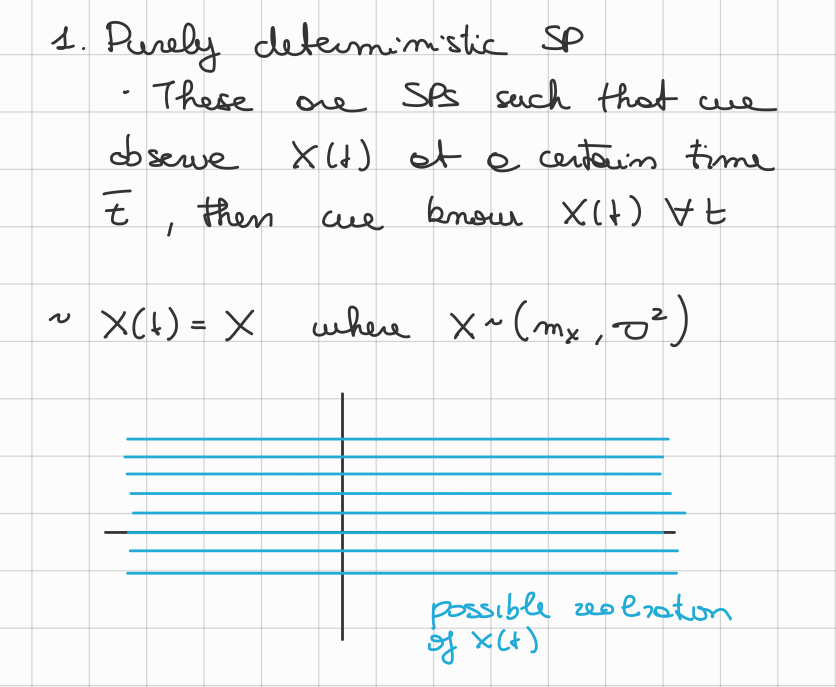 1. Purely deterministic SP
· These are SPs such that we
observe X(t) at a certain time
t̅, then we know X(t) ∀t
~ X(t) = X where X ~ (mₓ, σ²)
possible realization
of X(t)